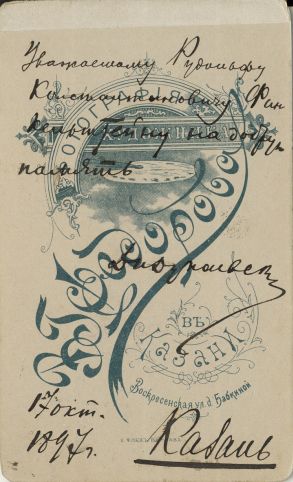 Уважаемому Рудольфу
Константиновичу Фин
кельштейну на добрую
память
ФОТОГРАФІЯ
В. Г. Ѳедорова
ВЪ
КАЗАНИ
Воскресенская ул. д. Бабкиной
17 окт.
1897 г.
Казань